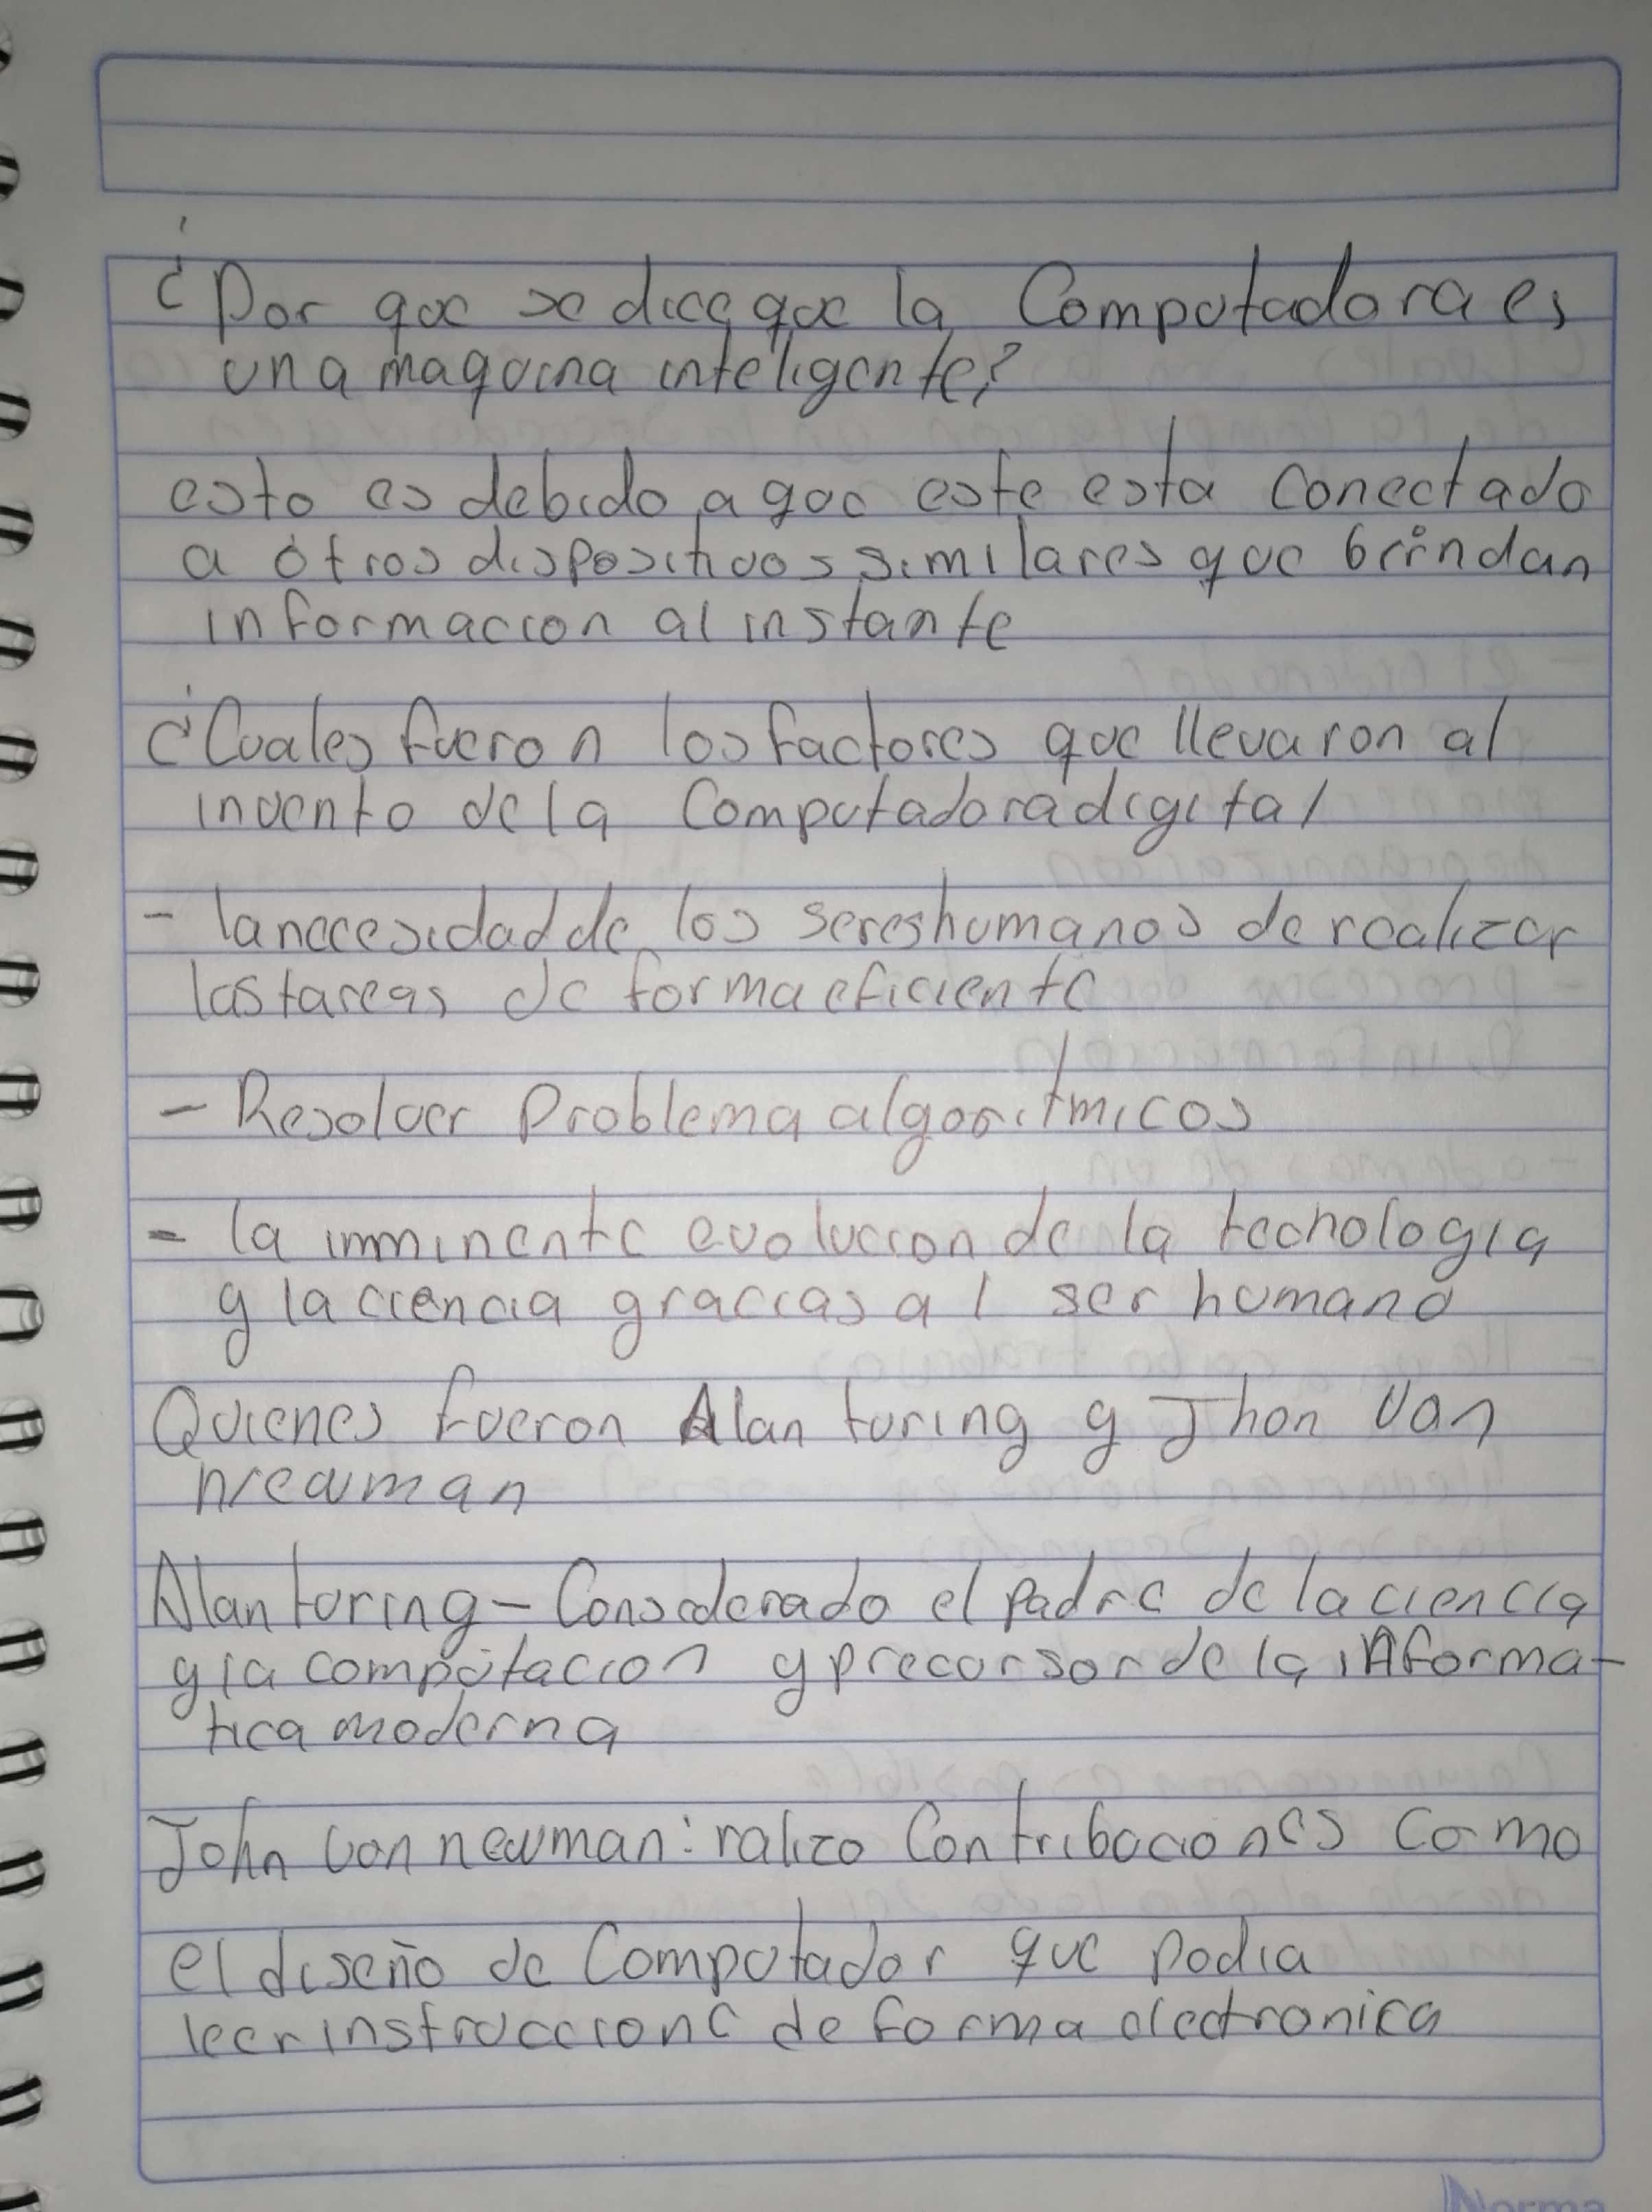 ¿Por que se dice que la Computadora es
una maquina inteligente?
esto es debido a que este esta conectado
a otros dispositivos similares que brindan
informacion al instante
¿Cuales fueron los factores que llevaron al
invento de la Computadora digital
- la nececidad de los seres humanos de realizar
las tareas de forma eficiente
- Resolver Problema algoritmicos
- la imminente evolucion de la tecnologia
y la ciencia gracias al ser humano
Quienes fueron Alan turing y Jhon Van
newman
Alan turing - Considerado el padre de la ciencia
y la computacion y precursor de la informa-
tica moderna
John von newman: ralizo Contribuciones como
el diseño de Computador que podia
leer instruccione de forma electronica
Norma